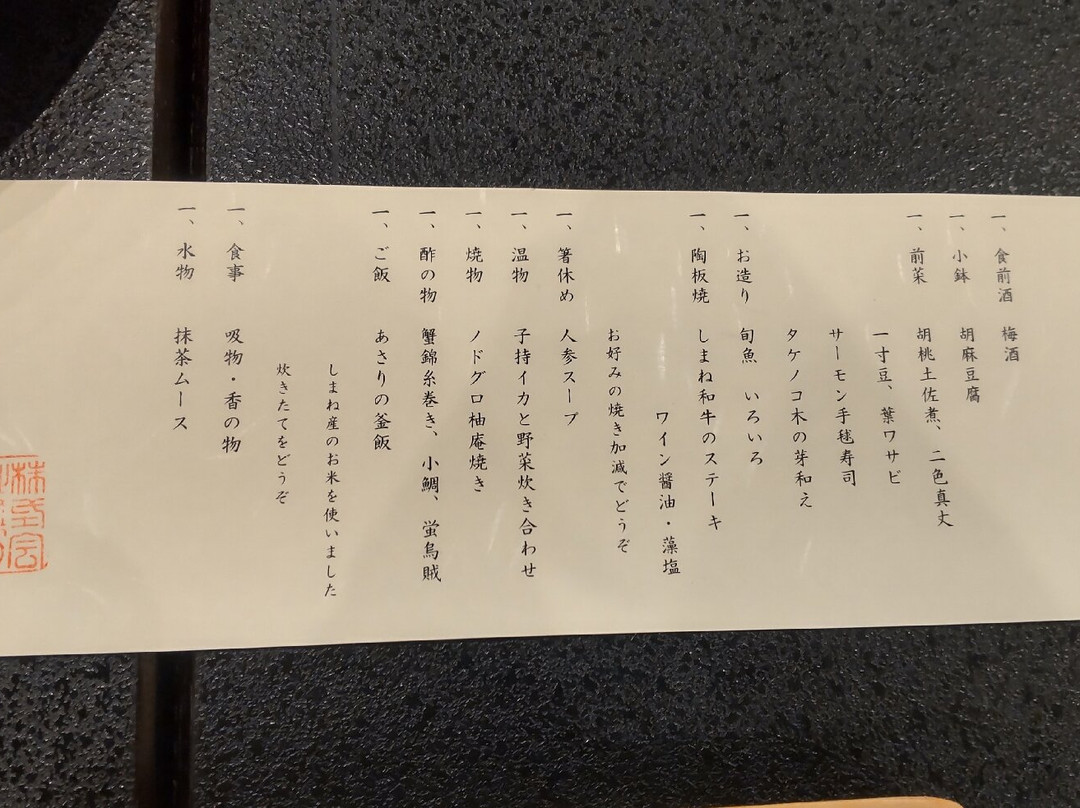 一、食前酒　梅酒
一、小鉢　胡麻豆腐
一、前菜　胡桃土佐煮、二色真丈
一寸豆、葉ワサビ
サーモン手毬寿司
タケノコ木の芽和え
一、お造り　旬魚　いろいろ
一、陶板焼　しまね和牛のステーキ
ワイン醤油・藻塩
お好みの焼き加減でどうぞ
一、箸休め　人参スープ
一、温物　子持イカと野菜炊き合わせ
一、焼物　ノドグロ柚庵焼き
一、酢の物　蟹錦糸巻き、小鯛、蛍烏賊
一、ご飯　あさりの釜飯
しまね産のお米を使いました
炊きたてをどうぞ
一、食事　吸物・香の物
一、水物　抹茶ムース